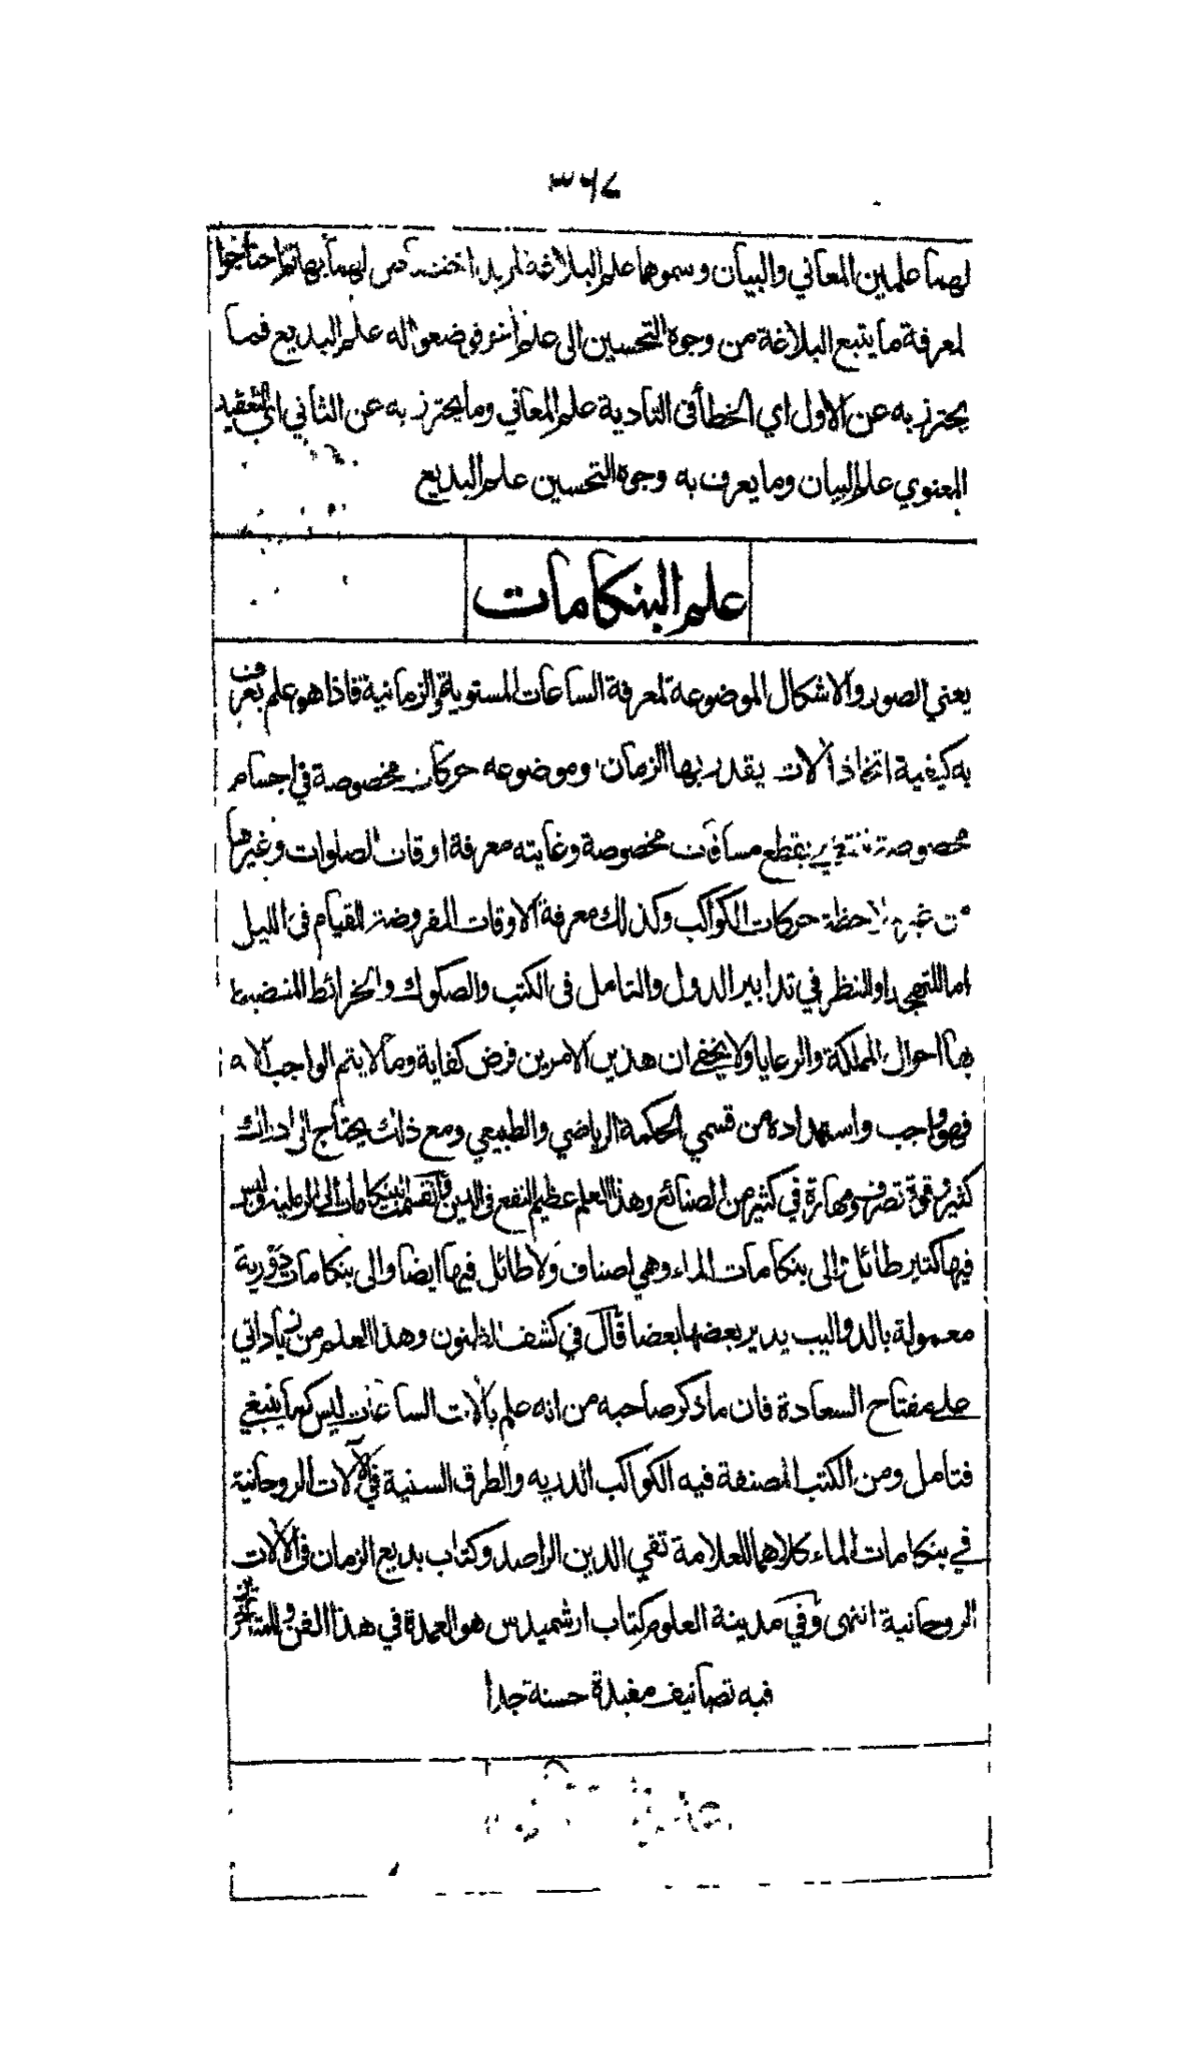 ٣٦٧
لهما علمين المعاني والبيان وسموهما علم البلاغة لمزيد اختصاص لهما بها ثم احتاجوا
لمعرفة ما يتبع البلاغة من وجوه التحسين الى علم اخر فوضعوا له علم البديع فما
يحترز به عن الاول اي الخطأ في التادية علم المعاني وما يحترز به عن الثاني اي التعقيد
المعنوي علم البيان وما يعرف به وجوه التحسين علم البديع
علم البنكامات
يعني الصور والاشكال الموضوعة لمعرفة الساعات المستوية والزمانية فاذا هو علم يعرف
به كيفية اتخاذ آلات يقدر بها الزمان وموضوعه حركات مخصوصة في اجسام
مخصوصة تنقضي بقطع مسافات مخصوصة وغايته معرفة اوقات الصلوات وغيرها
من غير ملاحظة حركات الكواكب وكذلك معرفة الاوقات المفروضة للقيام في الليل
اما للتهجد او النظر في تدابير الدول والتامل في الكتب والصكوك والخرائط المنضبط
بها احوال المملكة والرعايا ولا يخفى ان هذين الامرين فرض كفاية وما لا يتم الواجب الا به
فهو واجب واستمداده من قسمي الحكمة الرياضي والطبيعي ومع ذلك يحتاج الى ادراك
كثير وقوة تصرف ومهارة في كثير من الصنائع وهذا العلم عظيم النفع في الدين وانقسمت البنكامات الى الرملية وليس
فيها كثير طائل والى بنكامات الماء وهي اصناف ولا طائل فيها ايضا والى بنكامات دورية
معمولة بالدواليب يدير بعضها بعضا قال في كشف الظنون وهذا العلم من زياداتي
على مفتاح السعادة فان ما ذكر صاحبه من انه علم بآلات الساعات ليس كما ينبغي
فتامل ومن الكتب المصنفة فيه الكواكب الدرية والطرق السنية في الآلات الروحانية
في بنكامات الماء كلاهما للعلامة تقي الدين الراصد وكتاب بديع الزمان في الآلات
الروحانية انتهى وفي مدينة العلوم كتاب ارشميدس هو العمدة في هذا الفن وللمتاخرين
فيه تصانيف مفيدة حسنة جدا